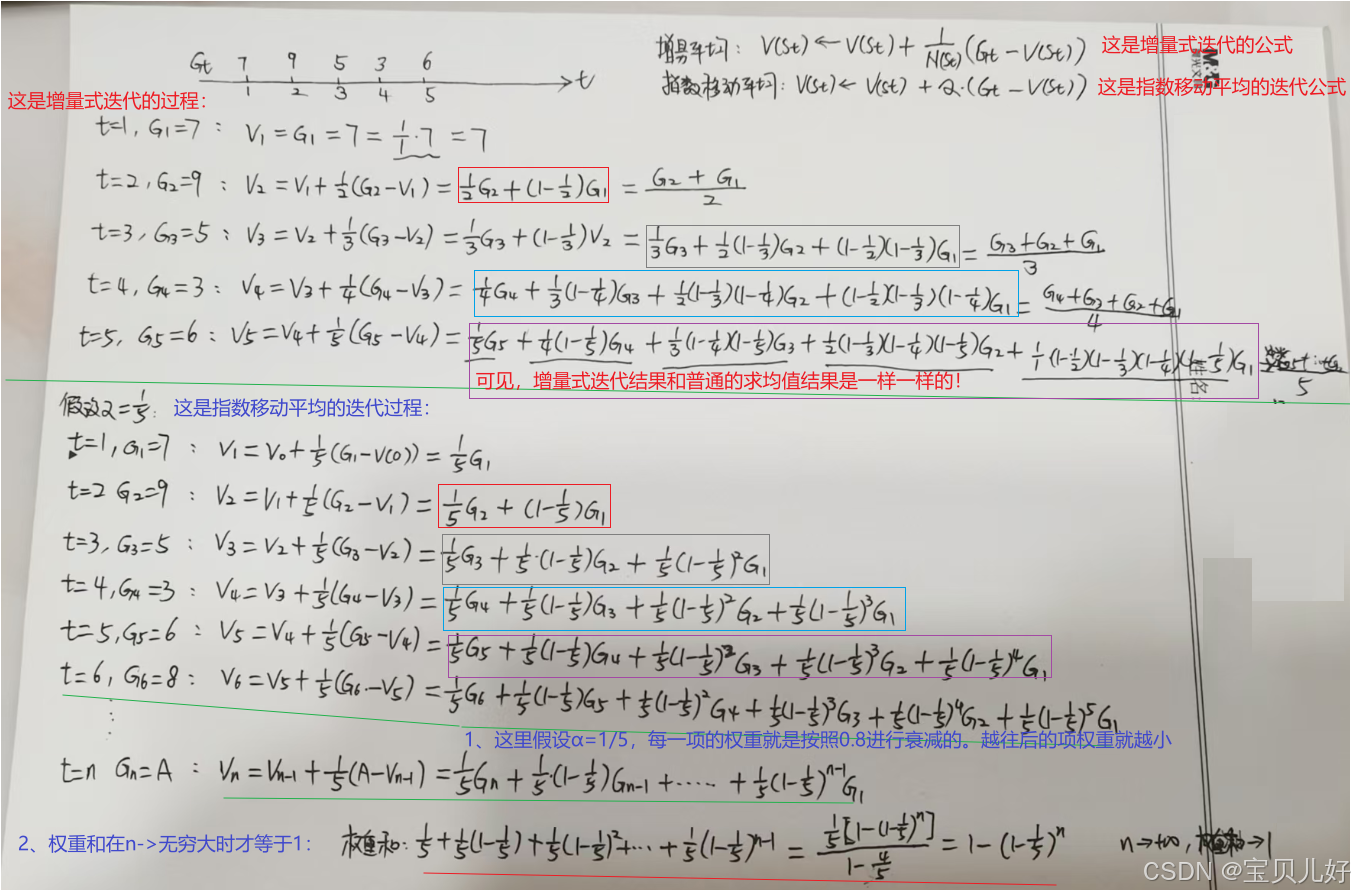 Gt 7 9 5 3 6
1 2 3 4 5 t
增量平均: V(St) ← V(St) + 1/N(St) (Gt - V(St)) 这是增量式迭代的公式
指数移动平均: V(St) ← V(St) + α·(Gt - V(St)) 这是指数移动平均的迭代公式
这是增量式迭代的过程:
t=1, G1=7 : V1 = G1 = 7 = 1/1·7 = 7
t=2, G2=9 : V2 = V1 + 1/2(G2-V1) = 1/2G2 + (1-1/2)G1 = (G2 + G1)/2
t=3, G3=5 : V3 = V2 + 1/3(G3-V2) = 1/3G3 + (1-1/3)V2 = 1/3G3 + 1/2(1-1/3)G2 + (1-1/2)(1-1/3)G1 = (G3+G2+G1)/3
t=4, G4=3 : V4 = V3 + 1/4(G4-V3) = 1/4G4 + 1/3(1-1/4)G3 + 1/2(1-1/3)(1-1/4)G2 + (1-1/2)(1-1/3)(1-1/4)G1 = (G4+G3+G2+G1)/4
t=5, G5=6 : V5 = V4 + 1/5(G5-V4) = 1/5G5 + 1/4(1-1/5)G4 + 1/3(1-1/4)(1-1/5)G3 + 1/2(1-1/3)(1-1/4)(1-1/5)G2 + 1/1(1-1/2)(1-1/3)(1-1/4)(1-1/5)G1
可见，增量式迭代结果和普通的求均值结果是一样一样的！
姓名:
假设α=1/5: 这是指数移动平均的迭代过程:
t=1, G1=7 : V1 = V0 + 1/5(G1-V(0)) = 1/5G1
t=2 G2=9 : V2 = V1 + 1/5(G2-V1) = 1/5G2 + (1-1/5)G1
t=3, G3=5 : V3 = V2 + 1/5(G3-V2) = 1/5G3 + 1/5·(1-1/5)G2 + 1/5(1-1/5)²G1
t=4, G4=3 : V4 = V3 + 1/5(G4-V3) = 1/5G4 + 1/5(1-1/5)G3 + 1/5(1-1/5)²G2 + 1/5(1-1/5)³G1
t=5, G5=6 : V5 = V4 + 1/5(G5-V4) = 1/5G5 + 1/5(1-1/5)G4 + 1/5(1-1/5)²G3 + 1/5(1-1/5)³G2 + 1/5(1-1/5)⁴G1
t=6, G6=8 : V6 = V5 + 1/5(G6-V5) = 1/5G6 + 1/5(1-1/5)G5 + 1/5(1-1/5)²G4 + 1/5(1-1/5)³G3 + 1/5(1-1/5)⁴G2 + 1/5(1-1/5)⁵G1
1、这里假设α=1/5，每一项的权重就是按照0.8进行衰减的。越往后的项权重就越小
t=n Gn=A : Vn = Vn-1 + 1/5(A-Vn-1) = 1/5Gn + 1/5·(1-1/5)Gn-1 + ······ + 1/5(1-1/5)ⁿ⁻¹G1
2、权重和在n->无穷大时才等于1: 权重和: 1/5 + 1/5(1-1/5) + 1/5(1-1/5)² + ··· + 1/5(1-1/5)ⁿ⁻¹ = 1/5[1-(1-1/5)ⁿ]/(1-4/5) = 1-(1-1/5)ⁿ n→+∞, 权重和→1
CSDN @宝贝儿好